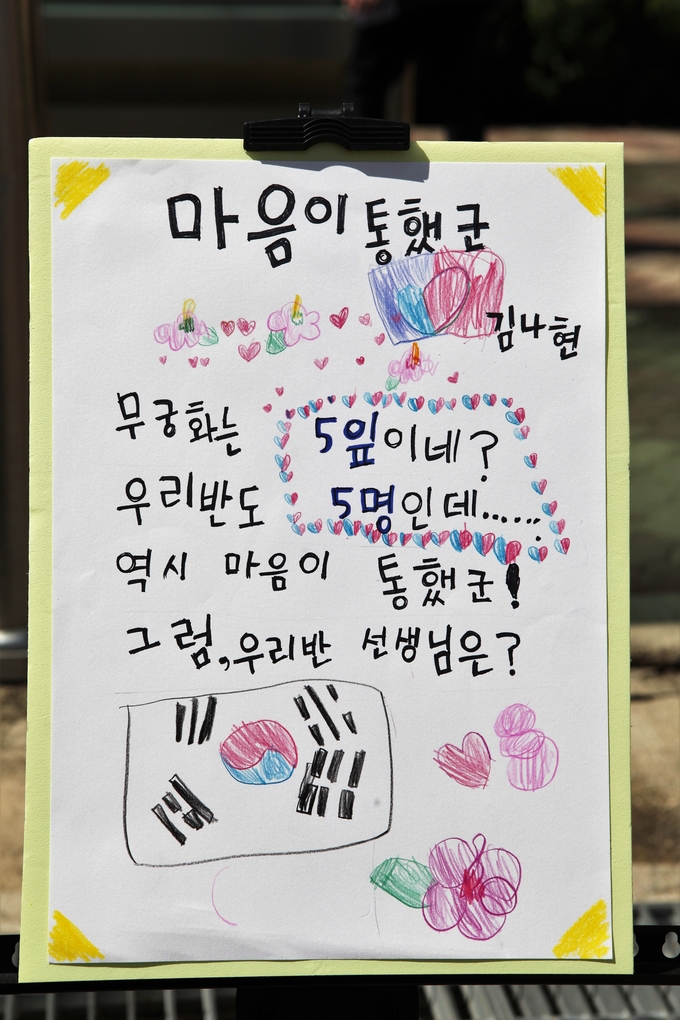 마음이 통했군
김나현
무궁화는 5잎이네?
우리반도 5명인데......
역시 마음이 통했군!
그럼, 우리반 선생님은?